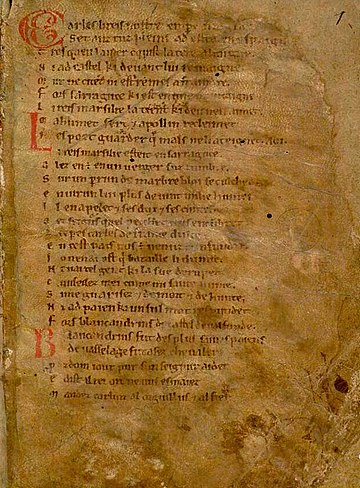 Carles li reis nostre emper magnes
Set anz tuz pleins ad estet en espaigne
Tresqu en la mer cunquist la tere altaigne
N i ad castel ki devant lui remaigne
Mur ne citet n i est remes a fraindre
Fors sarraguce ki est en une muntaigne
Li reis marsilie la tient ki deu nen aimet
Mahumet sert e apollin recleimet
Nes poet guarder q mals ne l ateignet aoi
Li reis marsilie esteit en sarraguce
Alez en est en un verger suz l umbre
Sur un perrun de marbre bloi se culchet
Envirun lui plus de vint milie humes
Il en apelet e ses dux e ses cuntes
quel pecchet nus encumbret
carles de france dulce
En cest pais nos est venuz cunfundre
Jo nen ai ost qi bataille li dunne
N ai tel gent ki la sue derumpet
Cunseilez mei cume mi saive hume
Si me guarisez e de mort e de hunte
N i ad paien ki un sul mot respundet
Fors blancandrins de castel de valfunde
Blancandrins fut des plus saives paiens
de vasselage fut asez chevaler
P dom i out pur sun seignur aider
E dist al rei or ne vus esmaiez
Mandez carlun al orguillus e al fier